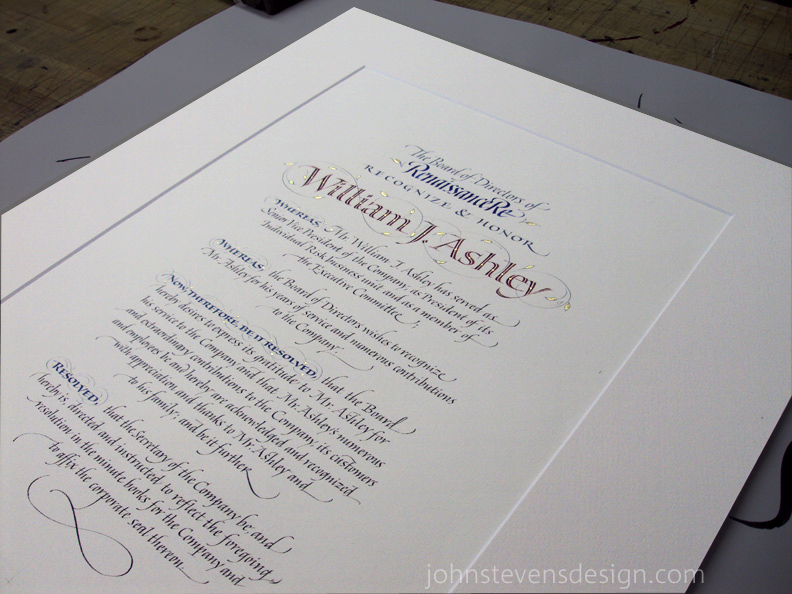 The Board of Directors of
RenaissanceRe
RECOGNIZE & HONOR
William J. Ashley
WHEREAS, Mr. William J. Ashley has served as
Senior Vice President of the Company, as President of its
Individual Risk business unit, and is a member of
the Executive Committee;
WHEREAS, the Board of Directors wishes to recognize
Mr. Ashley for his years of service and numerous contributions
to the Company.
NOW THEREFORE, BE IT RESOLVED, that the Board
hereby desires to express its gratitude to Mr. Ashley for
his service to the Company and that Mr. Ashley's numerous
and extraordinary contributions to the Company, its customers
and employees be and hereby are acknowledged and recognized
with appreciation and thanks to Mr. Ashley and
to his family; and be it further
RESOLVED, that the Secretary of the Company be and
hereby is directed and instructed to reflect the foregoing
resolution in the minute books for the Company and
to affix the corporate seal thereon.
johnstevensdesign.com